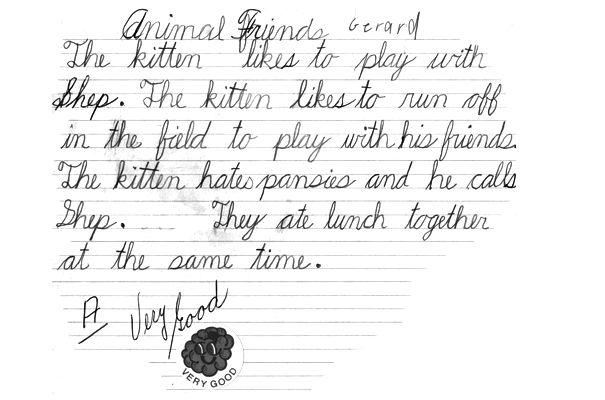 Animal Friends Gerard
The kitten likes to play with
Shep. The kitten likes to run off
in the field to play with his friends.
The kitten hates pansies and he calls
Shep. They ate lunch together
at the same time.
A Very Good
VERY GOOD